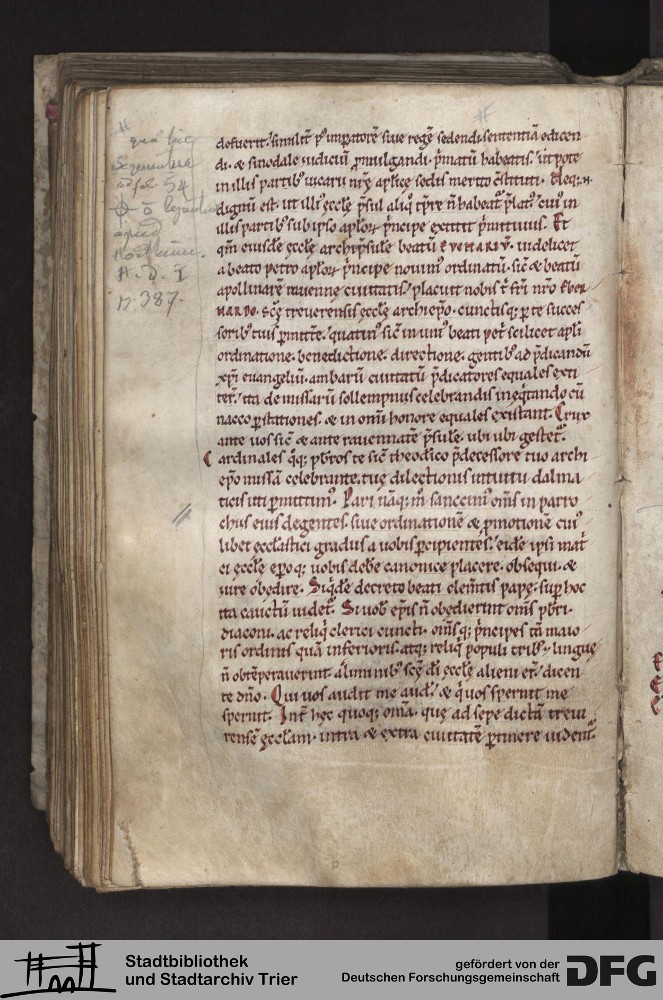 defuerit. similit p' impatorē siue regē sedendi. sententiā edicen
di. & sinodale iudiciū pmulgandi. pmatū habeatis. ut pote
in illis partib' uicarii nrę aplicę sedis merito cstituti. Neq; n.
dignū est ut illi' ecclę psul aliq' tpre n̄ habeat' plat'. cui' in
illis partib' sub ipso aploꝝ pncipe extitit pmitiuus. Et
qm̄ eiusdē ecclę archipsulē beatū EVHARIV̄. uidelicet
a beato petro aploꝝ pncipe nouim' ordinatū. sic & beatū
apollinarē rauennę ciuitatis. placuit nobis t' fri nro EBER
HARDO. scę treuerensis ecclę archiepo. cunctisq; p te succes
sorib' tuis pmittē. quatin' sic in uni' beati petri scilicet apli
ordinatione. benedictione. directione. gentib' ad pdicandū
xpi euangeliū. ambarū ciuitatū pdicatores equales exti
ter̄. ita de missarū sollempniis celebrandis ineqtando cū
nacco p stationes. & in omi honore equales existant. Crux
ante uos sic & ante rauennatē psulē. ubi ubi gestet'.
Cardinales qq; pbros te sic theodico pdecessore tuo archi
epo missā celebrante. tuę dilectionis intuitu dalma
ticis uti pmittim'. Pari nāq; m° sanccim' oms in parro
chiis eius degentes. siue ordinationē & pmotionē cui'
libet eccłastici gradus a uobis pcipientes. eidē ipsi mat
ei ecclę epoq; uobis debē canonice placere. obsequi. &
iure obedire. Siqdē decreto beati clemtis papę. sup hoc
ita cautū uidet'. Si uob epis n̄ obedierint oms pbri.
diaconi. ac reliq clerici cuncti. omsq; pncipes tā maio
ris ordinis quā inferioris. atq; reliq populi. trib'. linguę
n̄ obtēperauerint. a liminib' scę di ecclę alieni er̄. dicen
te dno. Qui uos audit me aud'. & quos spernit me
spernit. Int hęc quoq; oma. quę ad sepe dictā treui
rensē ęccłam. intra & extra ciuitatē ptinere uident'.
54
H. D. I
p. 387.
Stadtbibliothek
und Stadtarchiv Trier
gefördert von der
Deutschen Forschungsgemeinschaft
DFG